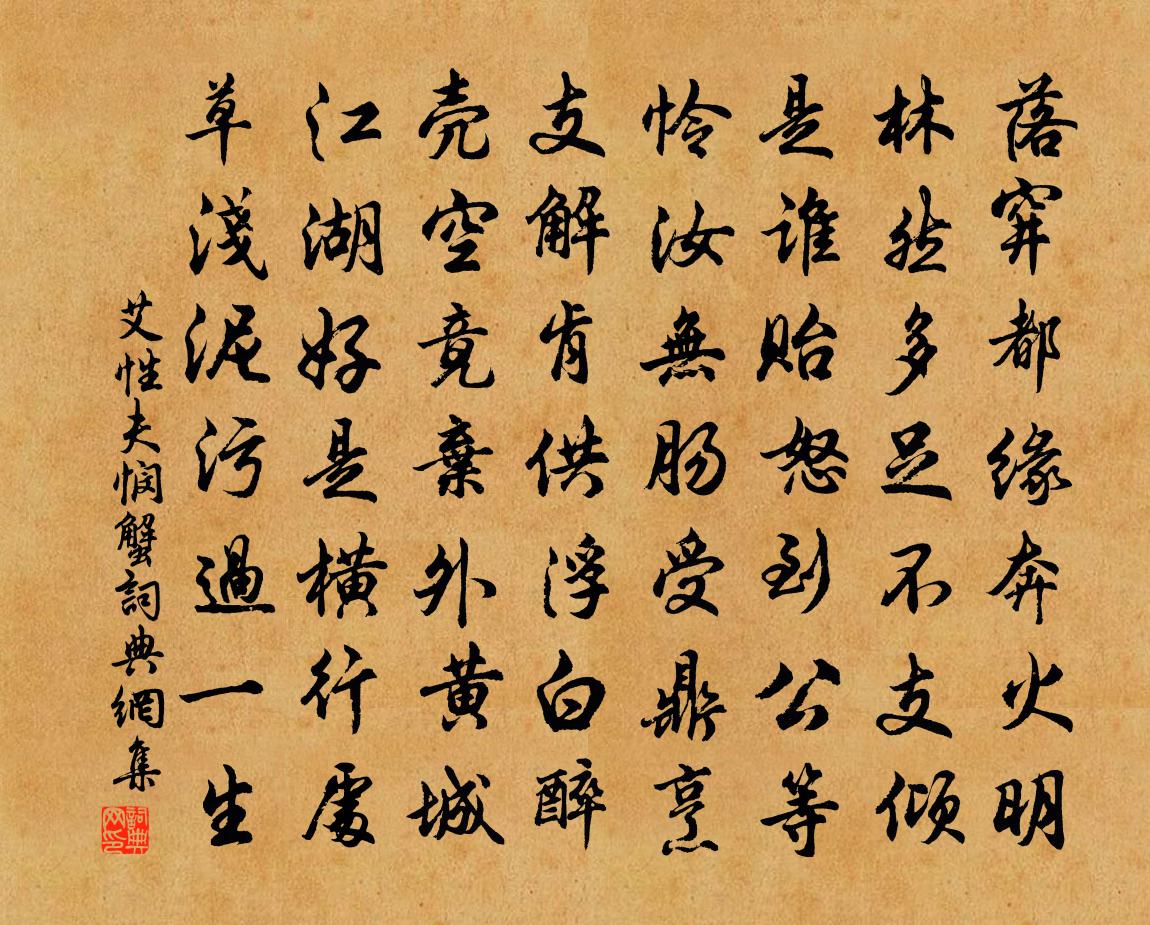 落穽都緣奔火明
林然多足不支傾
是誰貽怒到公等
怜汝無腸受鼎烹
支解肯供浮白醉
壳空竟棄外黄城
江湖好是橫行處
草淺泥污過一生
艾性夫悯蟹詞典網集
詞典网印